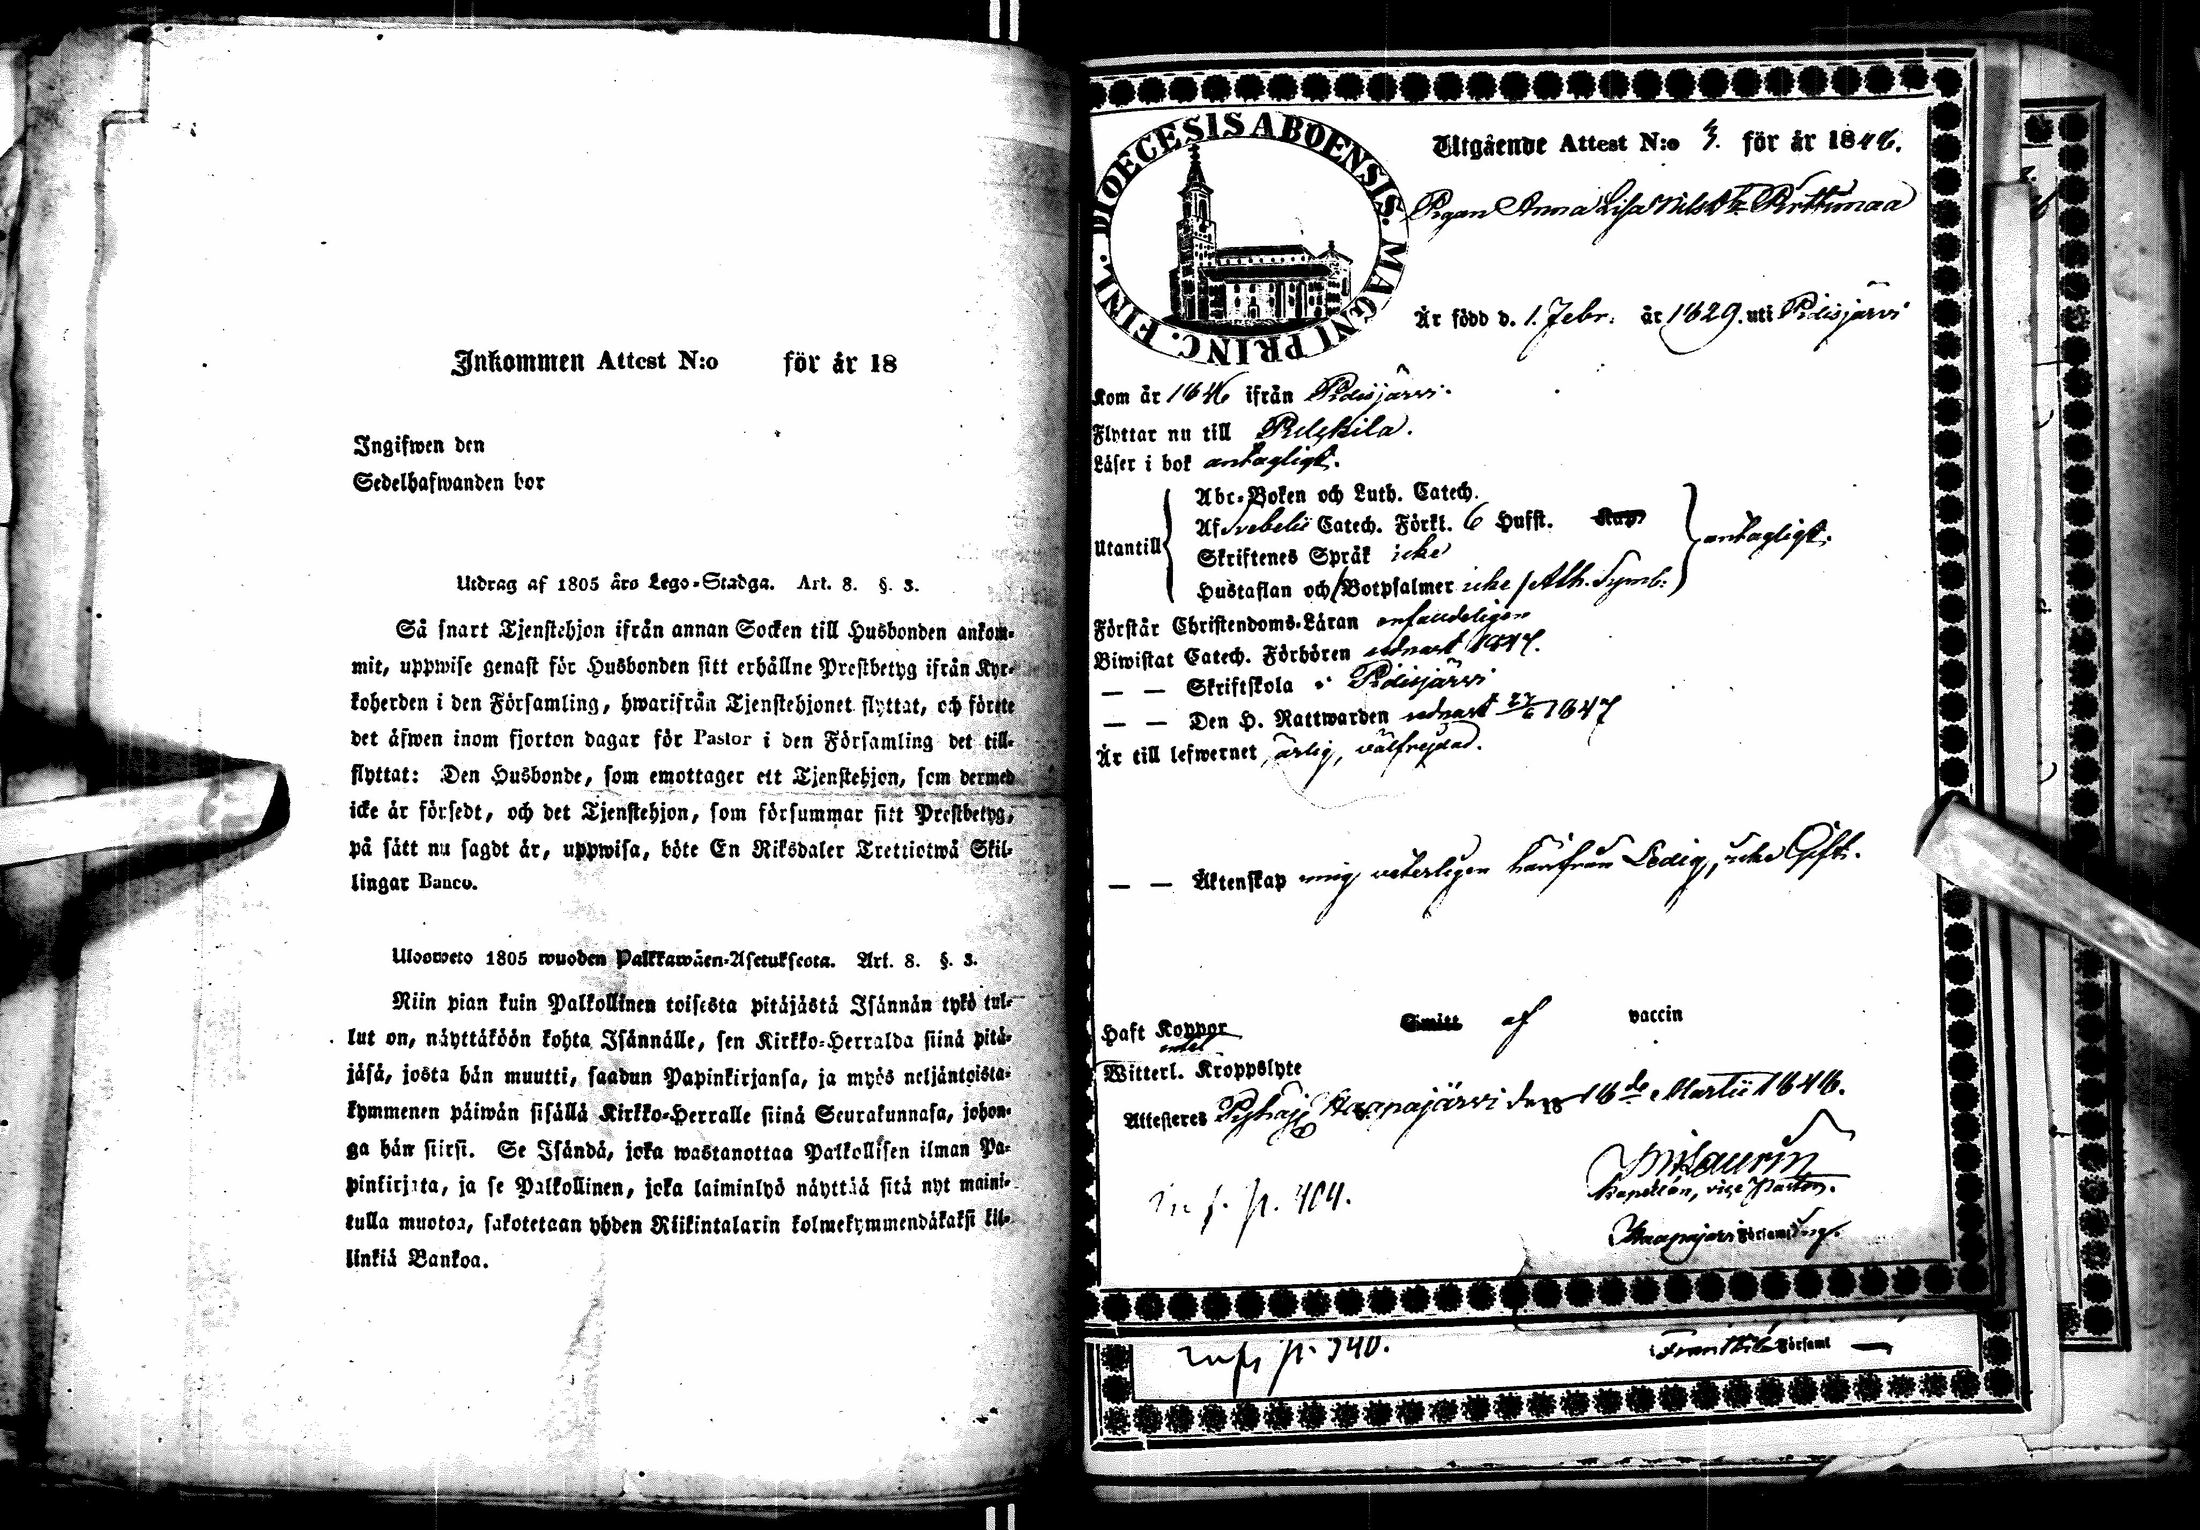 Inkommen Attest N:o för år 18
Ingifwen den
Sedelhafwanden bor
Utdrag af 1805 års Lego-Stadga. Art. 8. §. 3.
Så snart Tjenstehjon ifrån annan Socken till Husbonden ankom-
mit, uppwise genast för Husbonden sitt erhållne Prestbetyg ifrån Kyr-
koherden i den Församling, hwarifrån Tjenstehjonet flyttat, och förete
det äfwen inom fjorton dagar för Pastor i den Församling det till-
flyttat: Den Husbonde, som emottager ett Tjenstehjon, som dermed
icke är försedt, och det Tjenstehjon, som försummar sitt Prestbetyg,
på sätt nu sagdt är, uppwisa, böte En Riksdaler Trettiotwå Skil-
lingar Banco.
Ulosweto 1805 wuoden Palkkawäen-Asetuksesta. Art. 8. §. 3.
Niin pian kuin Palkollinen toisesta pitäjästä Isännän tykö tul-
lut on, näyttäköön kohta Isännälle, sen Kirkko-Herralda siinä pitä-
jäsä, josta hän muutti, saadun Papinkirjansa, ja myös neljäntoista-
kymmenen päiwän sisällä Kirkko-Herralle siinä Seurakunnasa, johon-
ga hän siirsi. Se Isändä, joka wastanottaa Palkollisen ilman Pa-
pinkirjata, ja se Palkollinen, joka laiminlyö näyttää sitä nyt maini-
tulla muotoa, sakotetaan yhden Riikintalarin kolmekymmendäkaksi kil-
linkiä Bankoa.
DIOECESIS ABOENSIS. MAGNI PRINC. FINL.
Utgående Attest N:o 3. för år 1848.
Pigan Anna Lisa Nilsdtr Pirttimaa
Är född d. 1. Febr. år 1829. uti Pidisjärvi
Kom år 1846 ifrån Pidisjärvi.
Flyttar nu till Pulkkila.
Läser i bok antagligt.
Utantill
Abc-Boken och Luth. Catech.
Af Svebelii Catech. Förkl. 6 Hufst.
Skriftenes Språk icke
Hustaflan och Botpsalmer icke /Ath. Symb:
antagligt.
Förstår Christendoms-Läran enfaldeligen
Biwistat Catech. Förhören sednast 1847.
— — Skriftskola i Pidisjärvi
— — Den H. Nattwarden sednast 27/6 1847
Är till lefwernet ärlig, välfrejdad.
— — Äktenskap mig veterligen härifrån Ledig, icke Gift.
Haft Koppor af vaccin
Witterl. Kroppslyte intet
Attesteres Pyhäj. Haapajärvi den 18 16de Martii 1848.
Kapellan, vice Pastor.
Haapajärvi Församling.
inf. p. 404.
inf. p. 340.
i Frantsila Församl